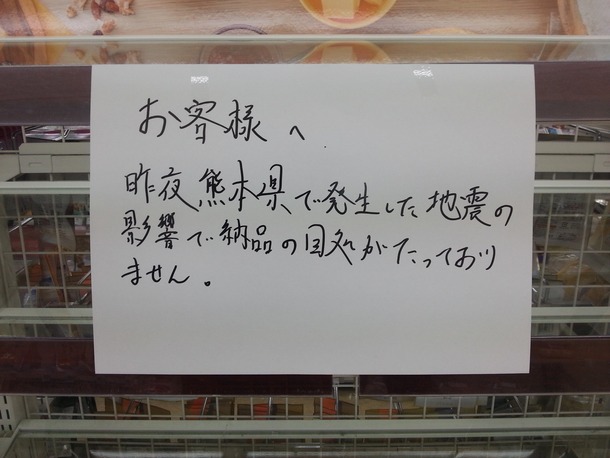 お客様へ
昨夜熊本県で発生した地震の
影響で納品の目処がたっており
ません。